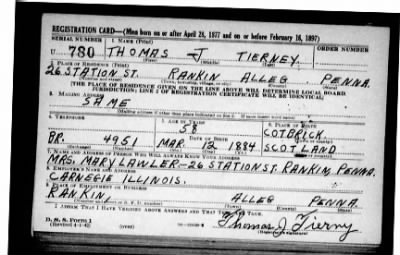 REGISTRATION CARD—(Men born on or after April 28, 1877 and on or before February 16, 1897)
SERIAL NUMBER 1. NAME (Print) ORDER NUMBER
U 780 THOMAS J TIERNEY
(First) (Middle) (Last)
2. PLACE OF RESIDENCE (Print)
26 STATION ST. RANKIN ALLEG PENNA.
(Number and street) (Town, township, village, or city) (County) (State)
[THE PLACE OF RESIDENCE GIVEN ON THE LINE ABOVE WILL DETERMINE LOCAL BOARD
JURISDICTION; LINE 2 OF REGISTRATION CERTIFICATE WILL BE IDENTICAL]
3. MAILING ADDRESS
SAME
[Mailing address if other than place indicated on line 2. If same insert word same]
4. TELEPHONE 5. AGE IN YEARS 6. PLACE OF BIRTH
58 COTBRICK
DATE OF BIRTH
BR. 4951 MAR. 12 1884 SCOTLAND
(Exchange) (Number) (Mo.) (Day) (Yr.) (State or country)
7. NAME AND ADDRESS OF PERSON WHO WILL ALWAYS KNOW YOUR ADDRESS
MRS. MARY LAWLER-26 STATION ST. RANKIN, PENNA.
8. EMPLOYER'S NAME AND ADDRESS
CARNEGIE ILLINOIS.
9. PLACE OF EMPLOYMENT OR BUSINESS
RANKIN, ALLEG PENNA.
(Number and street or R. F. D. number) (Town) (County) (State)
I AFFIRM THAT I HAVE VERIFIED ABOVE ANSWERS AND THAT THEY ARE TRUE.
D. S. S. Form 1
(Revised 4-1-42) Thomas J. Tierny
(Registrant's signature)